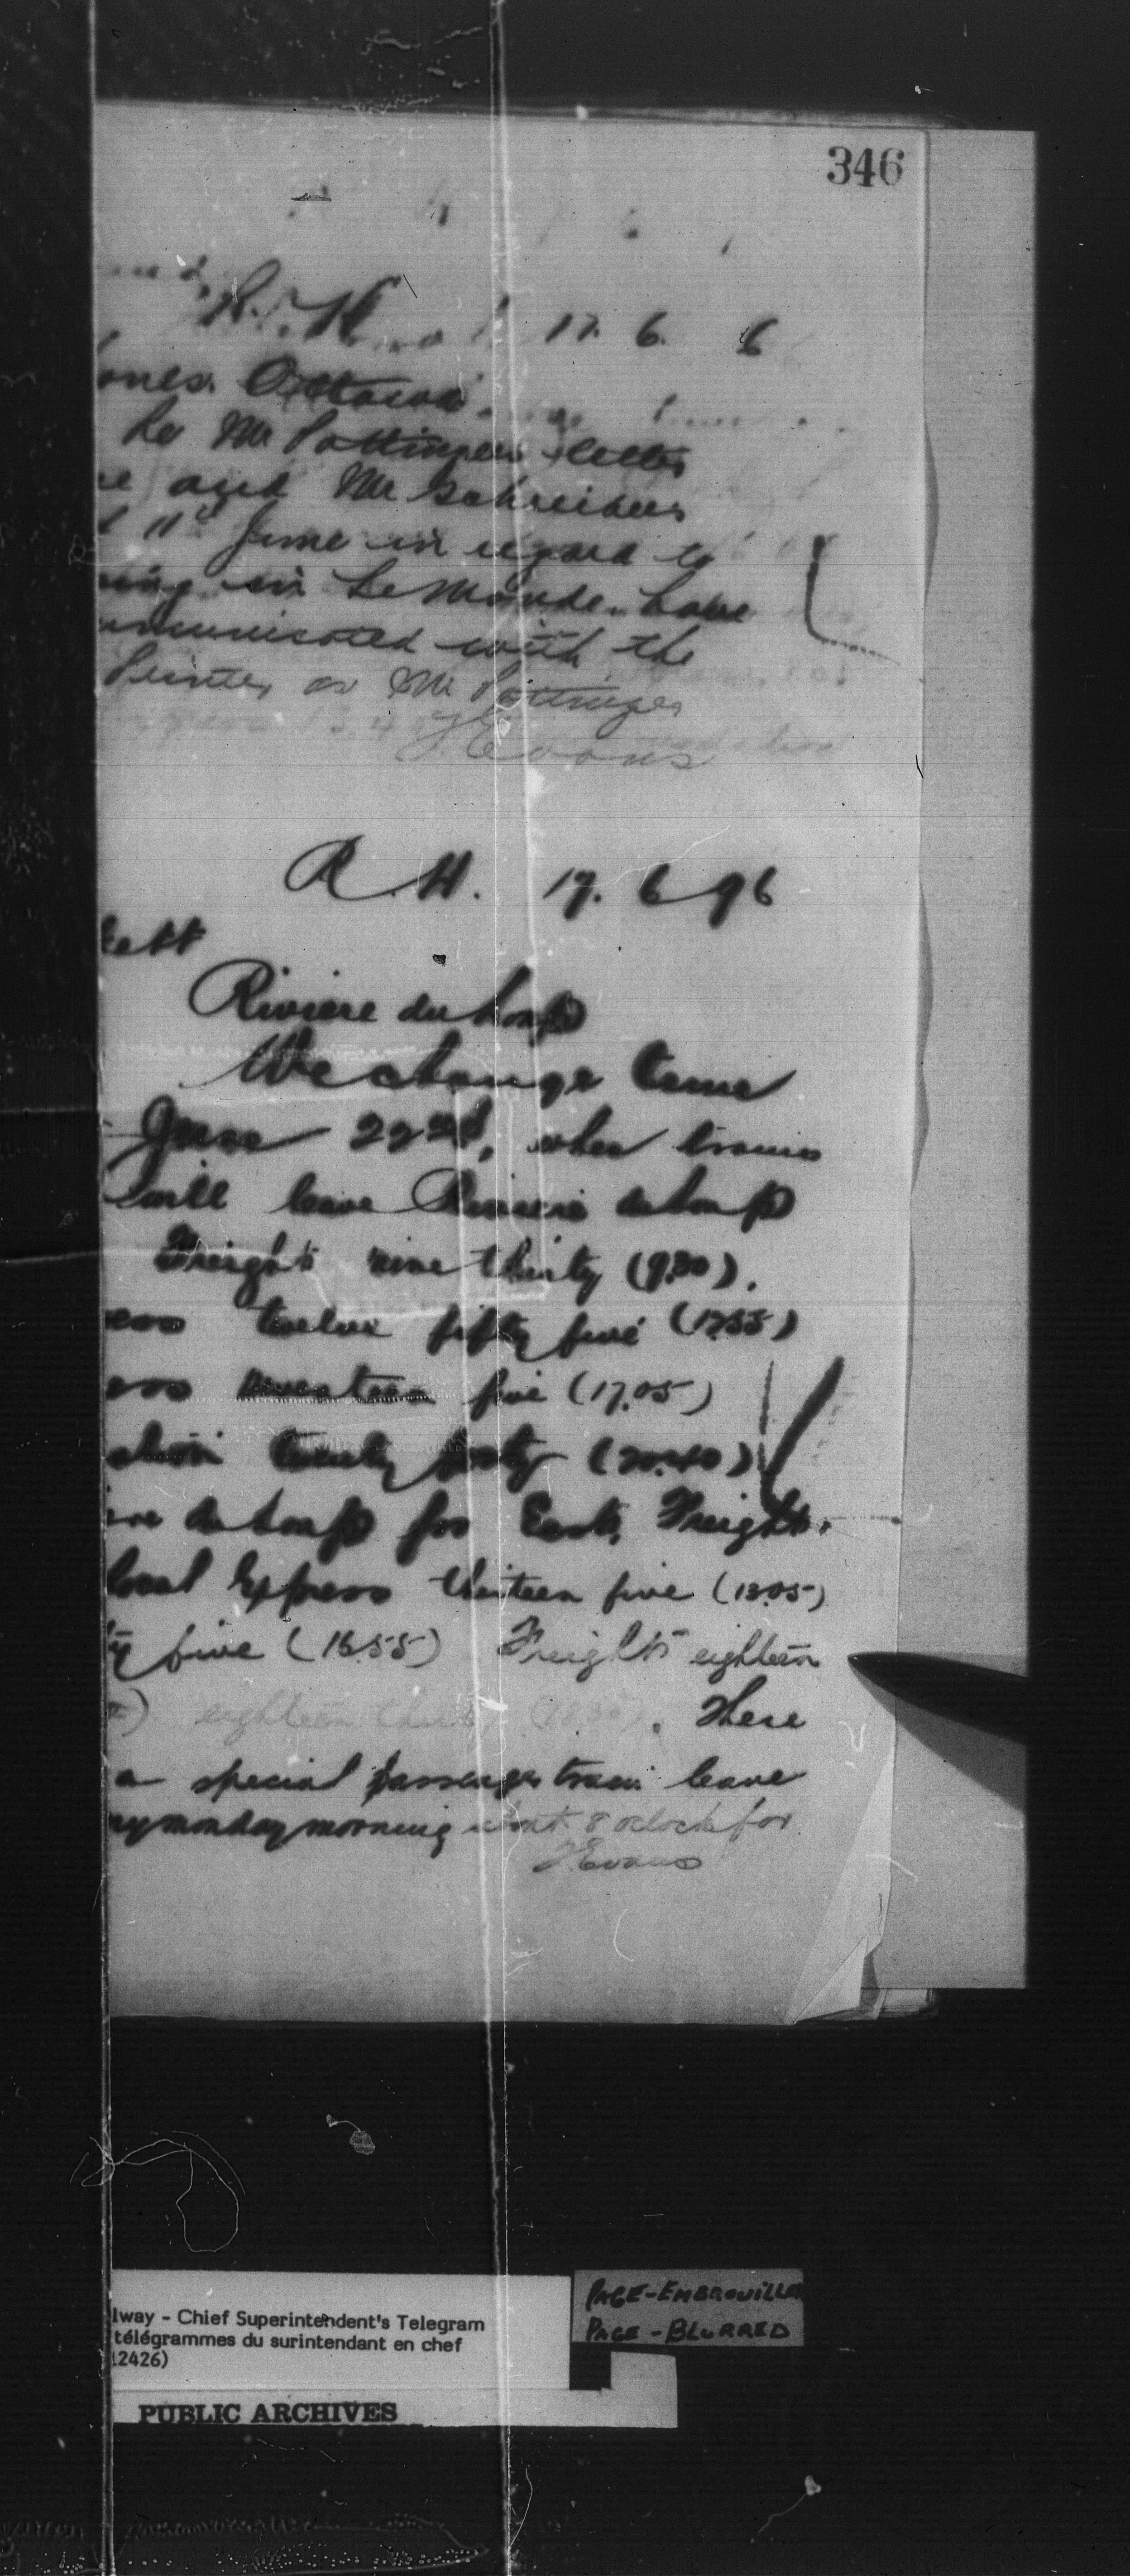 346
17. 6. 6
ones. Ottawa
Re Mr Pottingers letter
and Mr Schreibers
11th June in regard to
ing in Le Monde. have
mmunicated with the
Printer or Mr Pottinger
J Evans
R. H. 17. 6 96
kett
Riviere du Loup
We change time
June 22nd, when trains
will leave Riviere du Loup
Freight nine thirty (9.30).
ess twelve fifty five (12.55)
ess seventeen five (17.05)
ation twenty forty (20.40)
ere du Loup for East, Freight.
local Express thirteen five (13.05)
ty five (16.55) Freight eighteen
eighteen thirty (18.30). There
a special passenger train leave
ny monday morning about 8 oclock for
J Evans
lway - Chief Superintendent's Telegram
télégrammes du surintendant en chef
12426)
PAGE-EMBROUILLE
PAGE-BLURRED
PUBLIC ARCHIVES